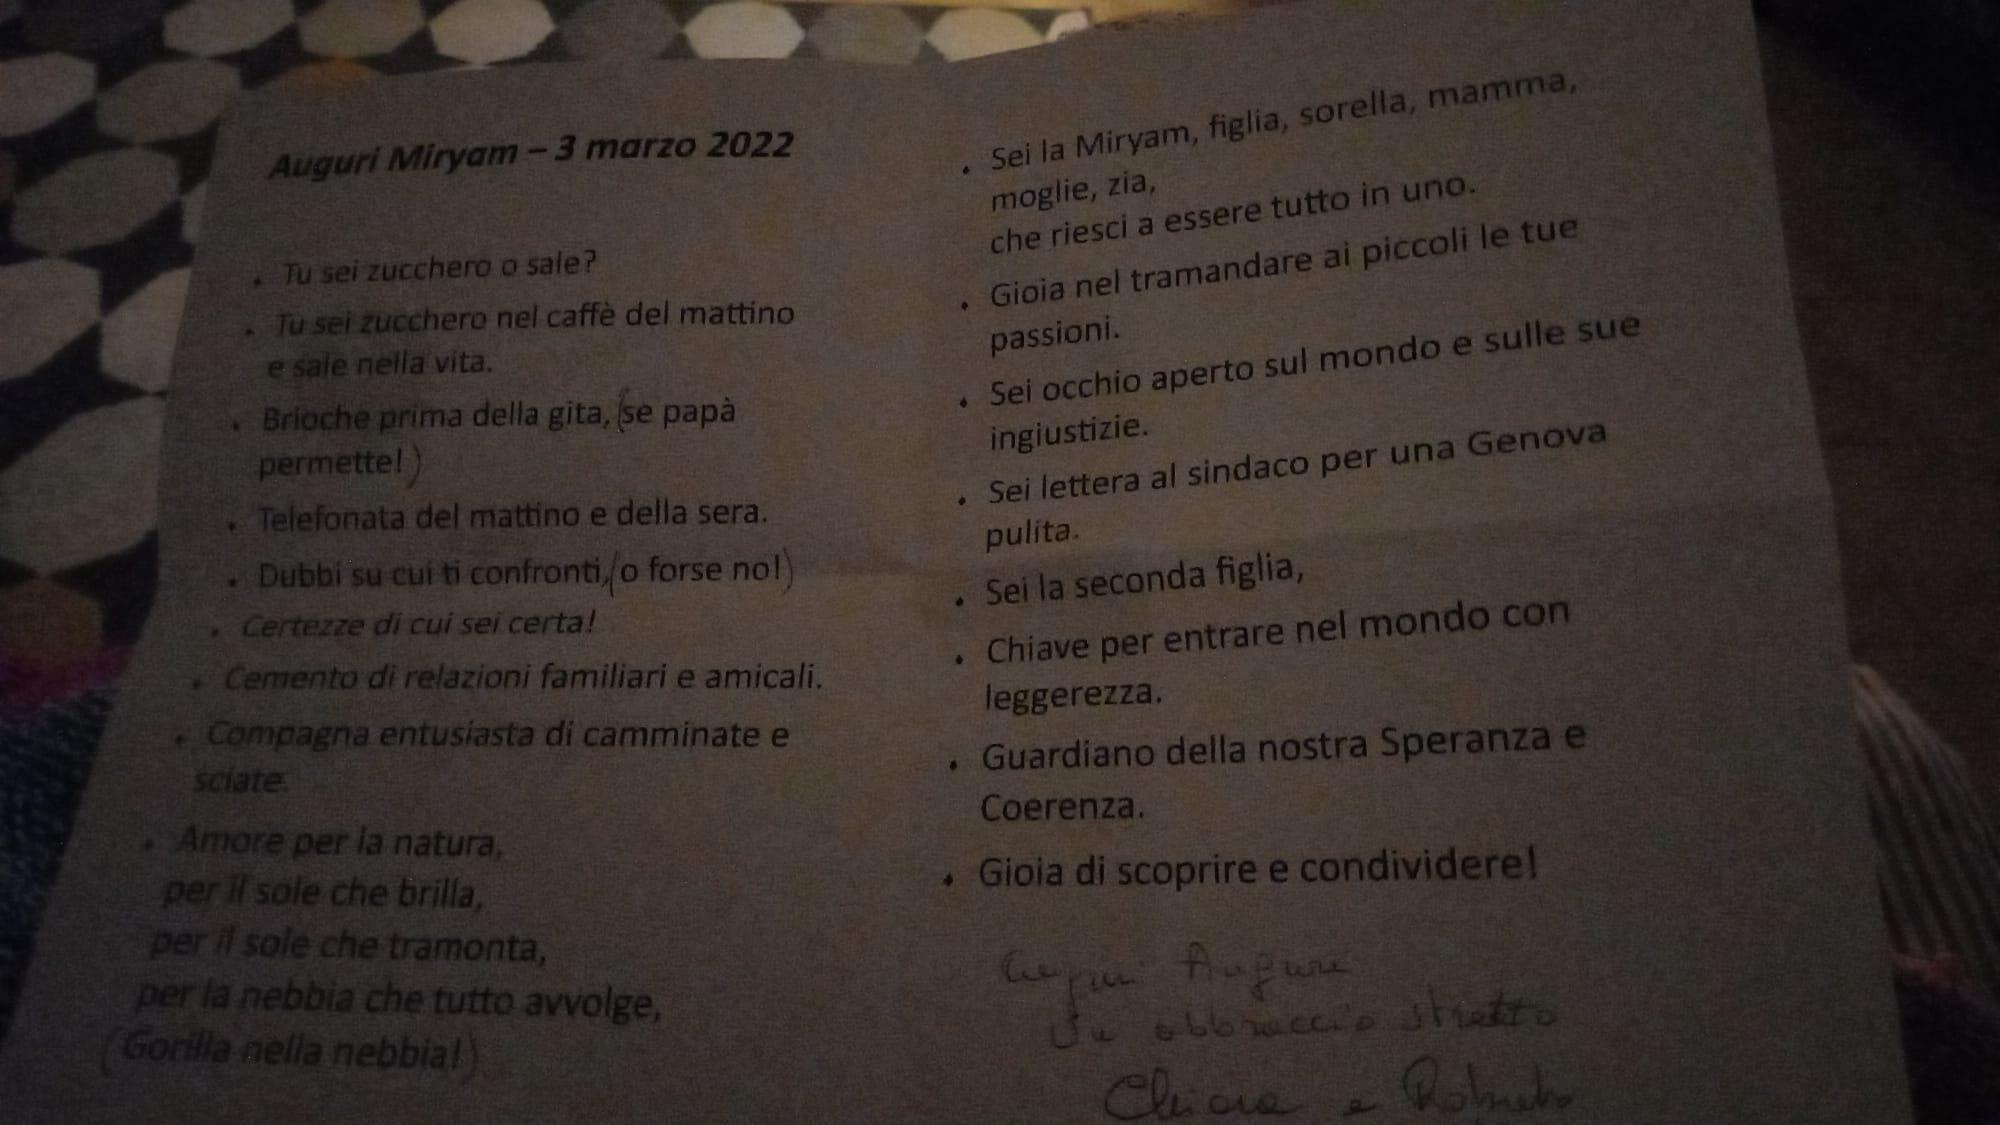 Auguri Miryam – 3 marzo 2022
• Tu sei zucchero o sale?
• Tu sei zucchero nel caffè del mattino
e sale nella vita.
• Brioche prima della gita, (se papà
permette!)
• Telefonata del mattino e della sera.
• Dubbi su cui ti confronti, (o forse no!)
• Certezze di cui sei certa!
• Cemento di relazioni familiari e amicali.
• Compagna entusiasta di camminate e
sciate.
• Amore per la natura,
per il sole che brilla,
per il sole che tramonta,
per la nebbia che tutto avvolge,
(Gorilla nella nebbia!)
• Sei la Miryam, figlia, sorella, mamma,
moglie, zia,
che riesci a essere tutto in uno.
• Gioia nel tramandare ai piccoli le tue
passioni.
• Sei occhio aperto sul mondo e sulle sue
ingiustizie.
• Sei lettera al sindaco per una Genova
pulita.
• Sei la seconda figlia,
• Chiave per entrare nel mondo con
leggerezza.
• Guardiano della nostra Speranza e
Coerenza.
• Gioia di scoprire e condividere!
Auguri
Un abbraccio stretto
Chiara e Roberto